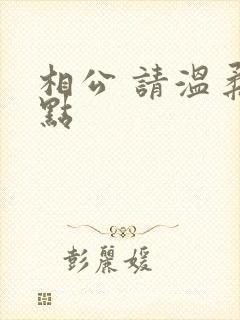 相公 請溫柔
點
彭麗媛